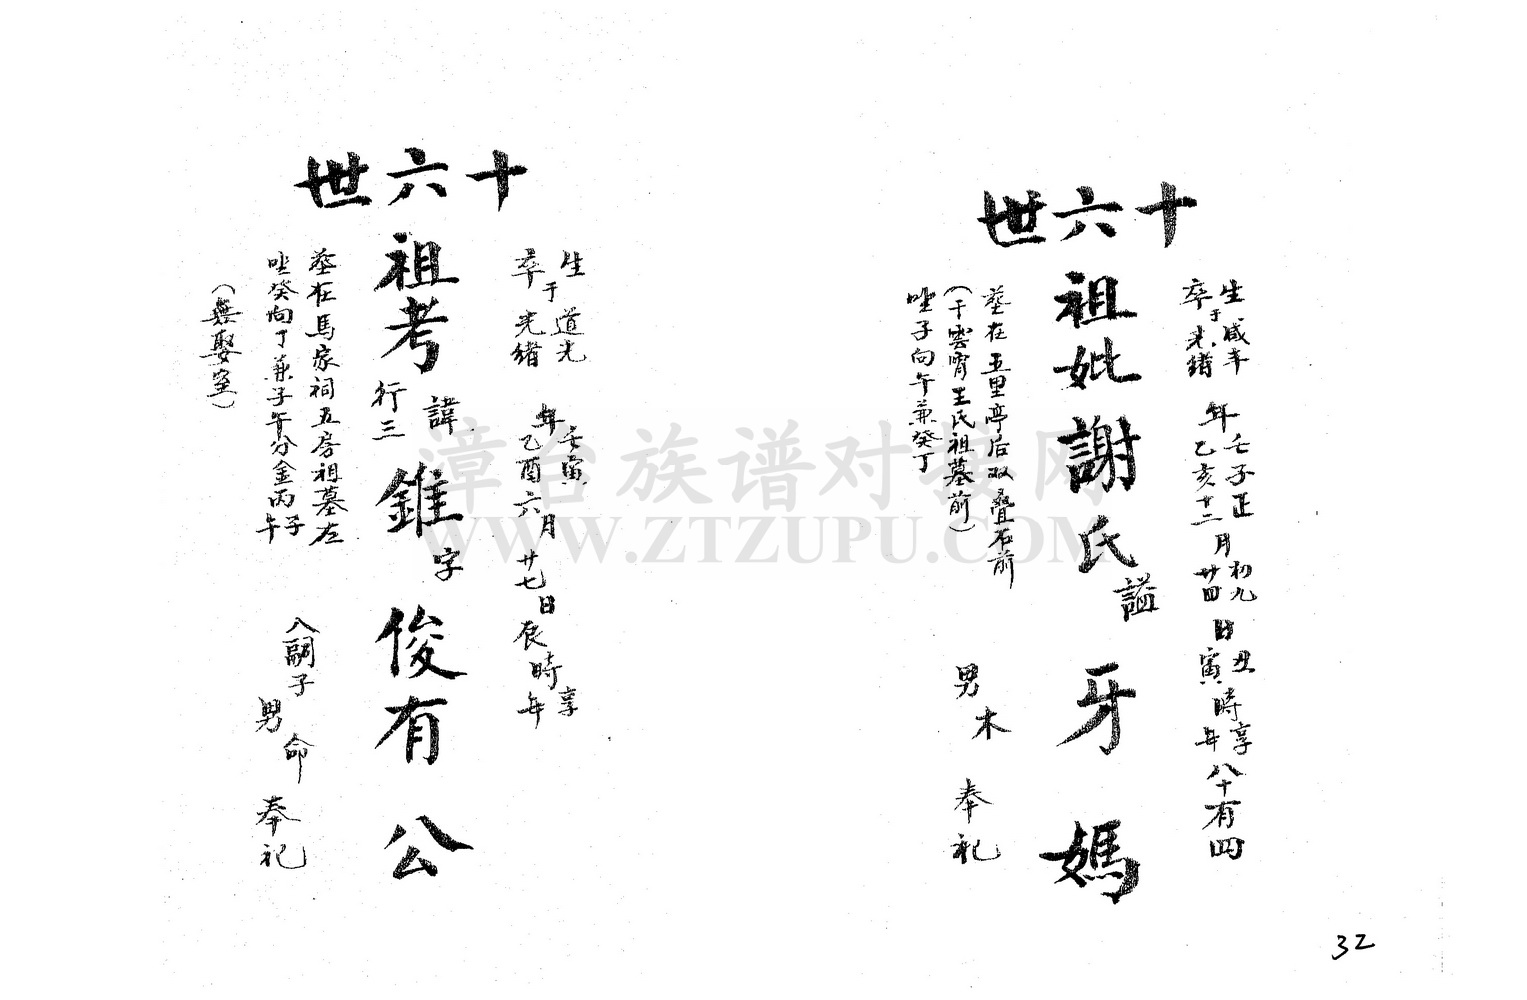 十六世
祖妣謝氏謚牙媽
生咸丰年壬子正月初九日丑時享
卒于光緒年乙亥十二月廿四日寅時年八十有四
塟在五里亭后双叠石前
(于雲霄王氏祖墓前)
坐子向午兼癸丁
男木奉祀
十六世
祖考諱錐字俊有公
行三
生于道光年壬寅
卒于光緒年乙酉六月廿七日辰時享年
塟在馬家祠五房祖墓左
坐癸向丁兼子午分金丙子丙午
(無娶室)
入嗣子男命奉祀
32
漳台族谱对接网
WWW.ZTZUPU.COM